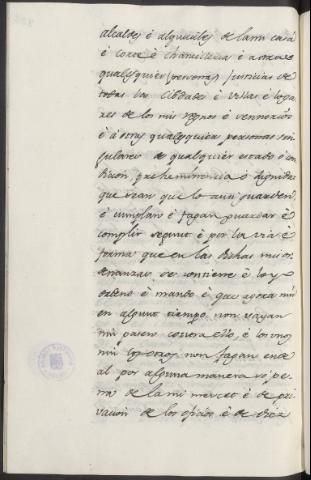 alcaldes é alguaciles de la mi casa
é corte é chancilleria é a otras
qualesquier personas Justicias de
todas las Cibdades é Villas é loga-
res de los mis regnos é Sennorios
é á otras qualesquier personas sin-
gulares de qualquier estado ó con-
dicion preheminencia ó dignidad
que sean que lo ansi guarden
é cumplan é fagan guardar é
complir segunt é por la via é
forma que en las dichas mis or-
denanzas se contiene é lo yo
ordeno é mando é que agora nin
en algunt tiempo non vayan
nin pasen contra ello, é los unos
nin los otros non fagan ende
al por alguna manera só pe-
na de la mi merced é de pri-
vacion de los oficios é de diez